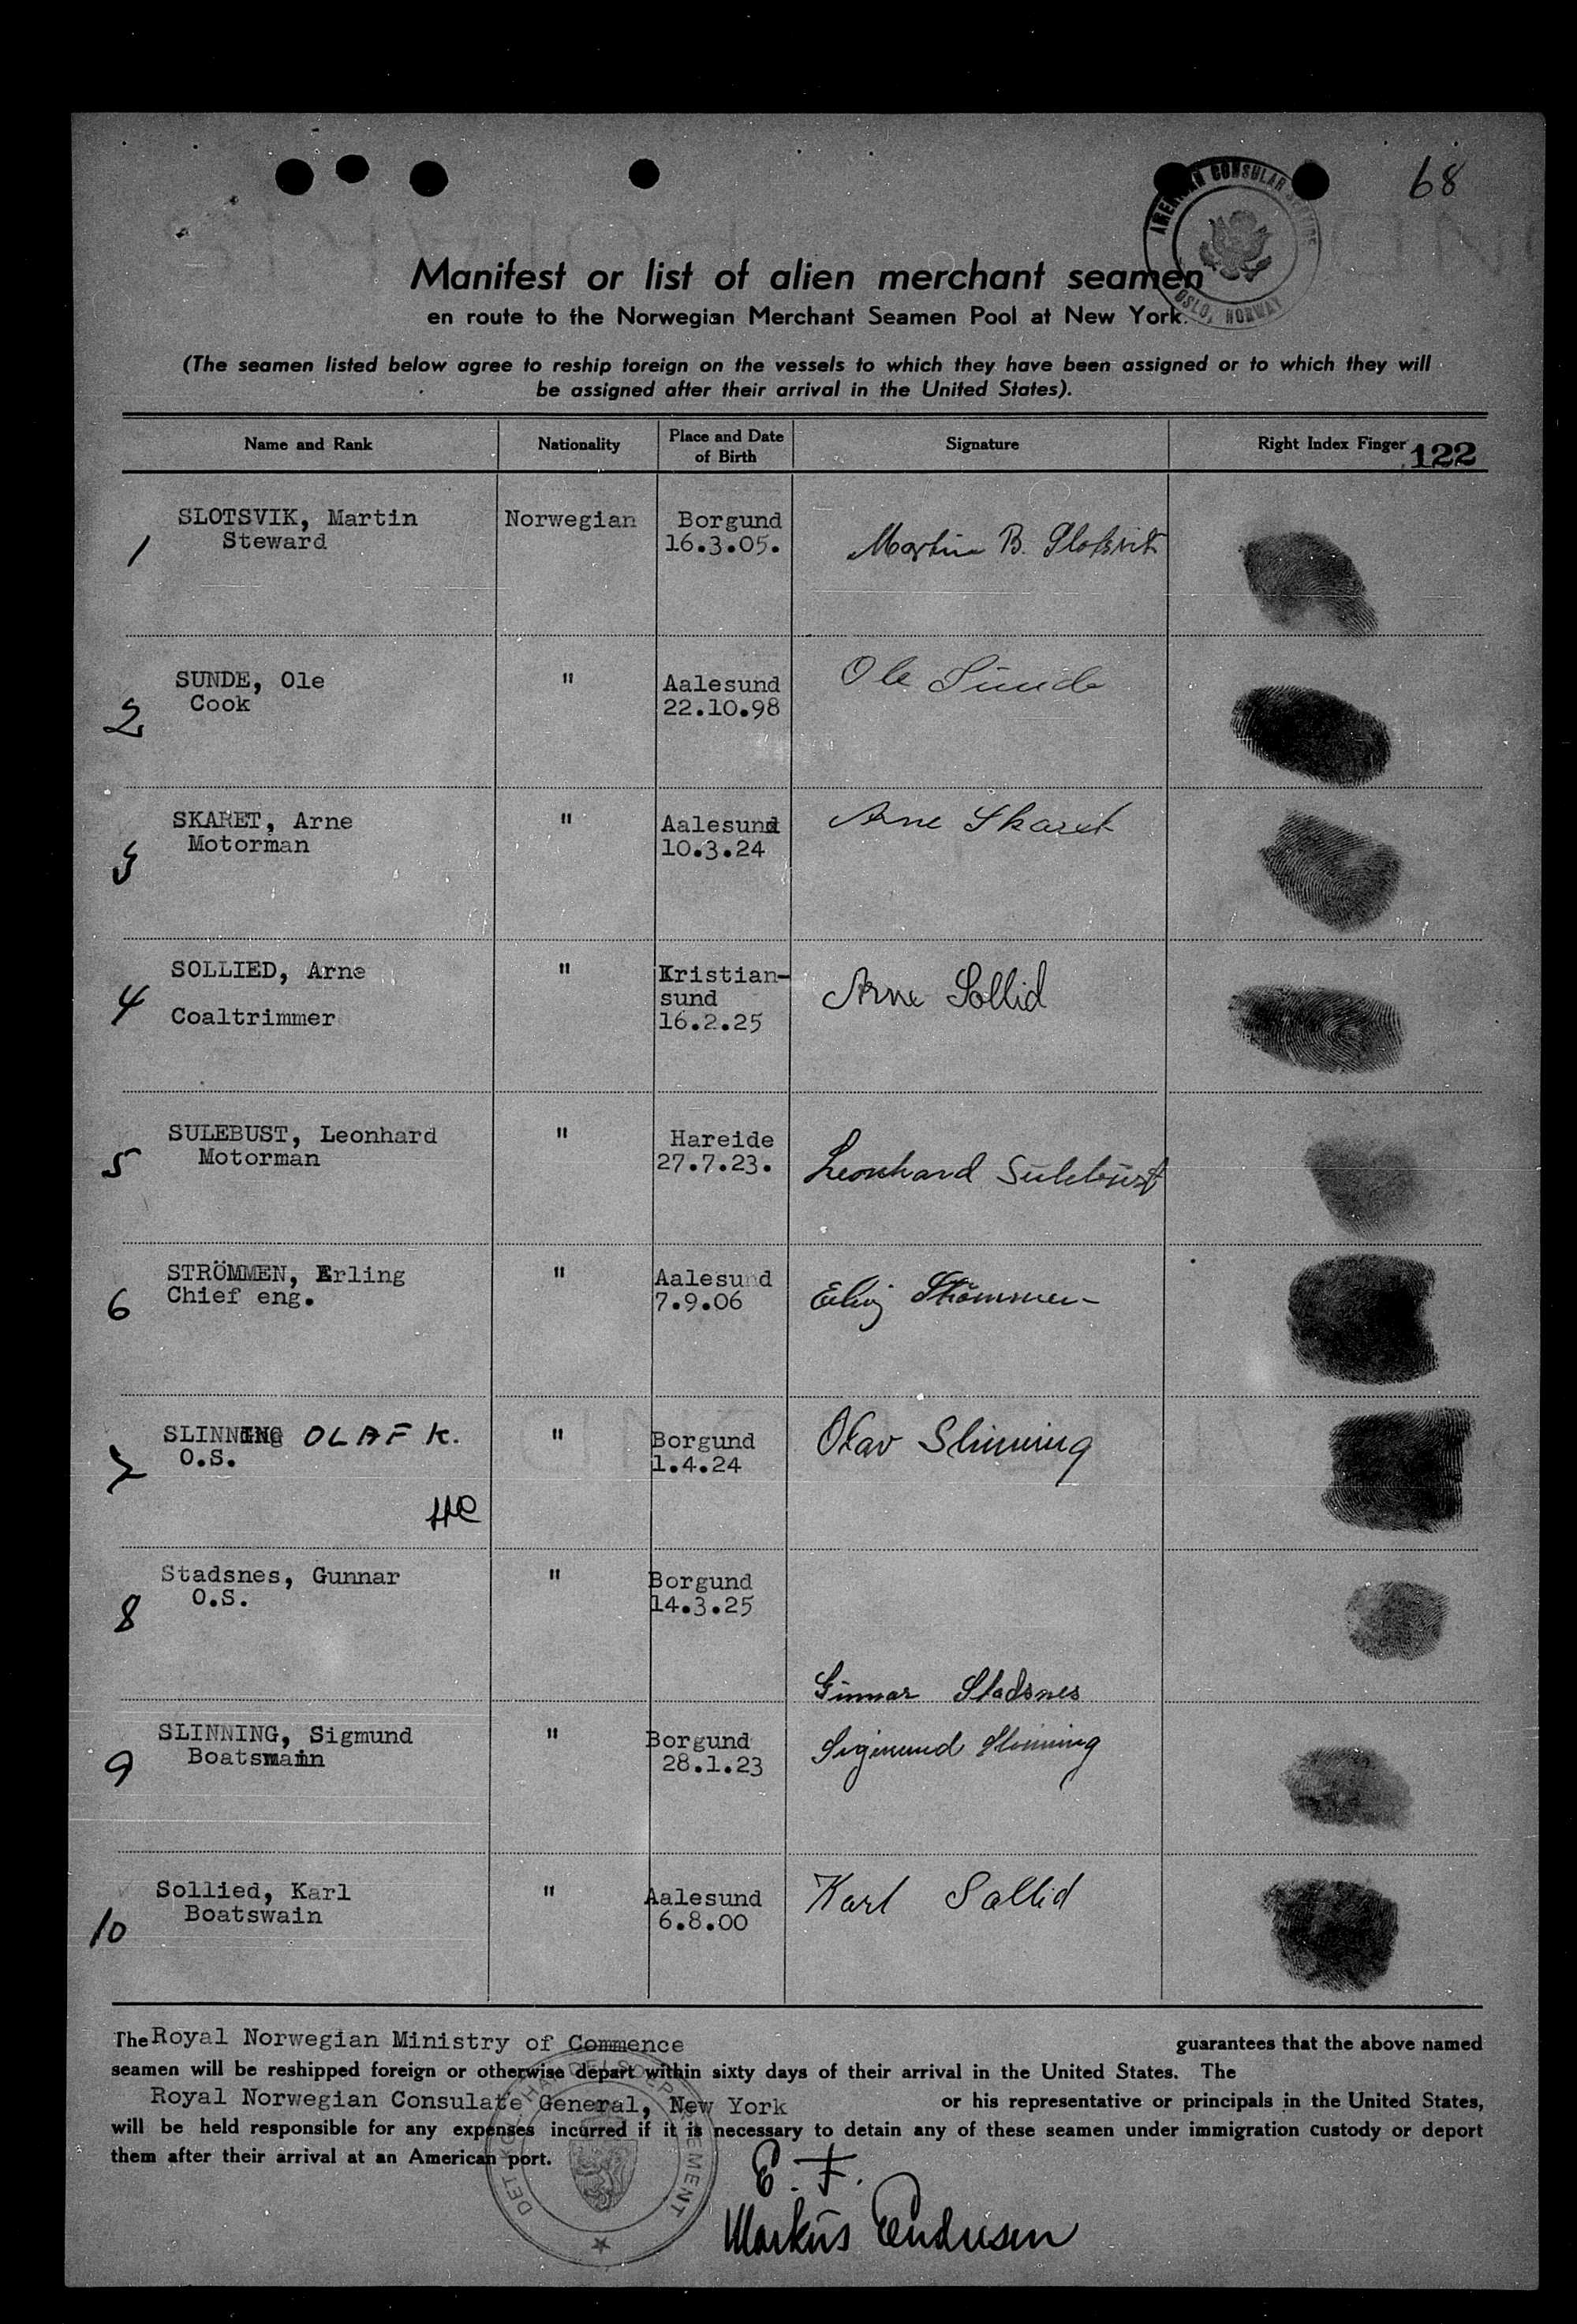 68
AMERICAN CONSULAR SERVICE
OSLO, NORWAY
Manifest or list of alien merchant seamen
en route to the Norwegian Merchant Seamen Pool at New York.
(The seamen listed below agree to reship foreign on the vessels to which they have been assigned or to which they will
be assigned after their arrival in the United States).
Name and Rank Nationality Place and Date of Birth Signature Right Index Finger 122
1 SLOTSVIK, Martin Norwegian Borgund Martin B. Slotsvik
Steward 16.3.05.
2 SUNDE, Ole " Aalesund Ole Sunde
Cook 22.10.98
3 SKARET, Arne " Aalesund Arne Skaret
Motorman 10.3.24
4 SOLLIED, Arne " Kristian-
sund Arne Sollid
Coaltrimmer 16.2.25
5 SULEBUST, Leonhard " Hareide Leonhard Sulebust
Motorman 27.7.23.
6 STRÖMMEN, Erling " Aalesund Erling Strömmen
Chief eng. 7.9.06
7 SLINNING OLAF K. " Borgund Olav Slinning
O.S. 1.4.24
8 Stadsnes, Gunnar " Borgund
O.S. 14.3.25
Gunnar Stadsnes
9 SLINNING, Sigmund " Borgund Sigmund Slinning
Boatsmain 28.1.23
10 Sollied, Karl " Aalesund Karl Sollid
Boatswain 6.8.00
The Royal Norwegian Ministry of Commence guarantees that the above named
seamen will be reshipped foreign or otherwise depart within sixty days of their arrival in the United States. The
Royal Norwegian Consulate General, New York or his representative or principals in the United States,
will be held responsible for any expenses incurred if it is necessary to detain any of these seamen under immigration custody or deport
them after their arrival at an American port.
E. F.
Markus Endresen